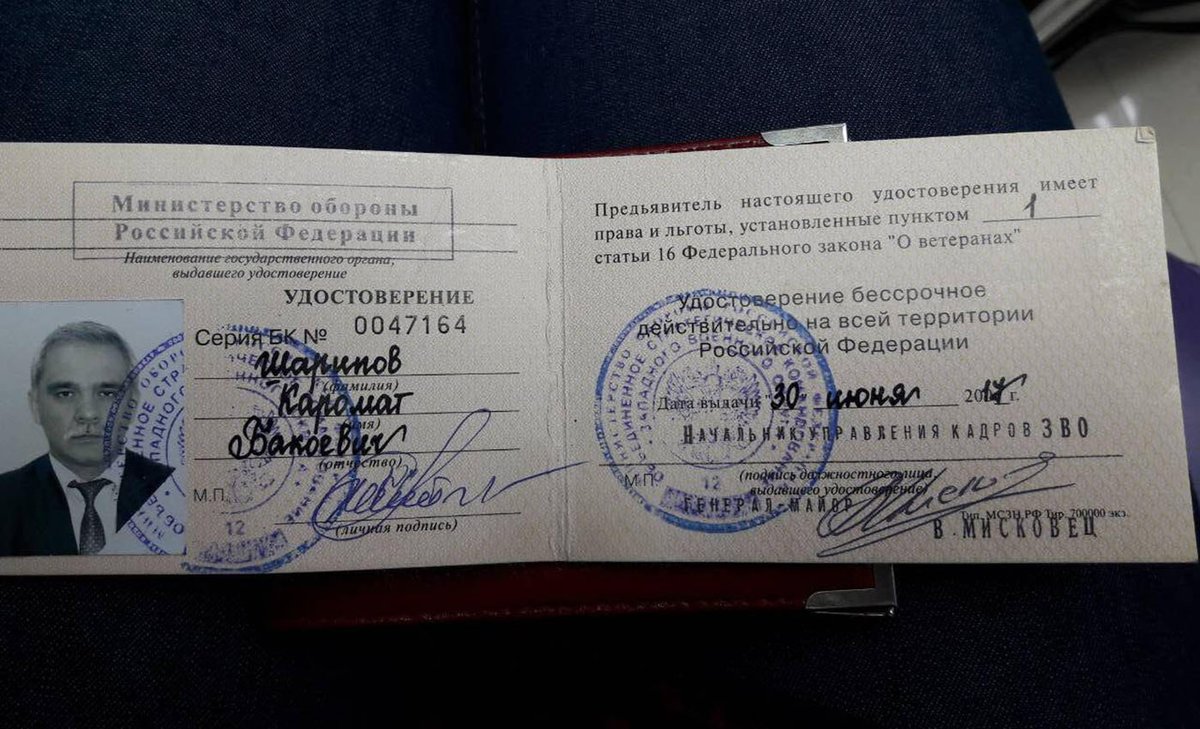 Министерство обороны
Российской Федерации
Наименование государственного органа,
выдавшего удостоверение
УДОСТОВЕРЕНИЕ
Серия БК № 0047164
Шарипов
(фамилия)
Каромат
(имя)
Бакоевич
(отчество)
М.П.
(личная подпись)
12
Предъявитель настоящего удостоверения имеет
права и льготы, установленные пунктом 1
статьи 16 Федерального закона "О ветеранах"
Удостоверение бессрочное
действительно на всей территории
Российской Федерации
Дата выдачи "30" июня 2017 г.
НАЧАЛЬНИК УПРАВЛЕНИЯ КАДРОВ ЗВО
М.П.
(подпись должностного лица,
выдавшего удостоверение)
12
ГЕНЕРАЛ-МАЙОР
Тип. МСЗН РФ Тир. 700000 экз.
В. МИСКОВЕЦ